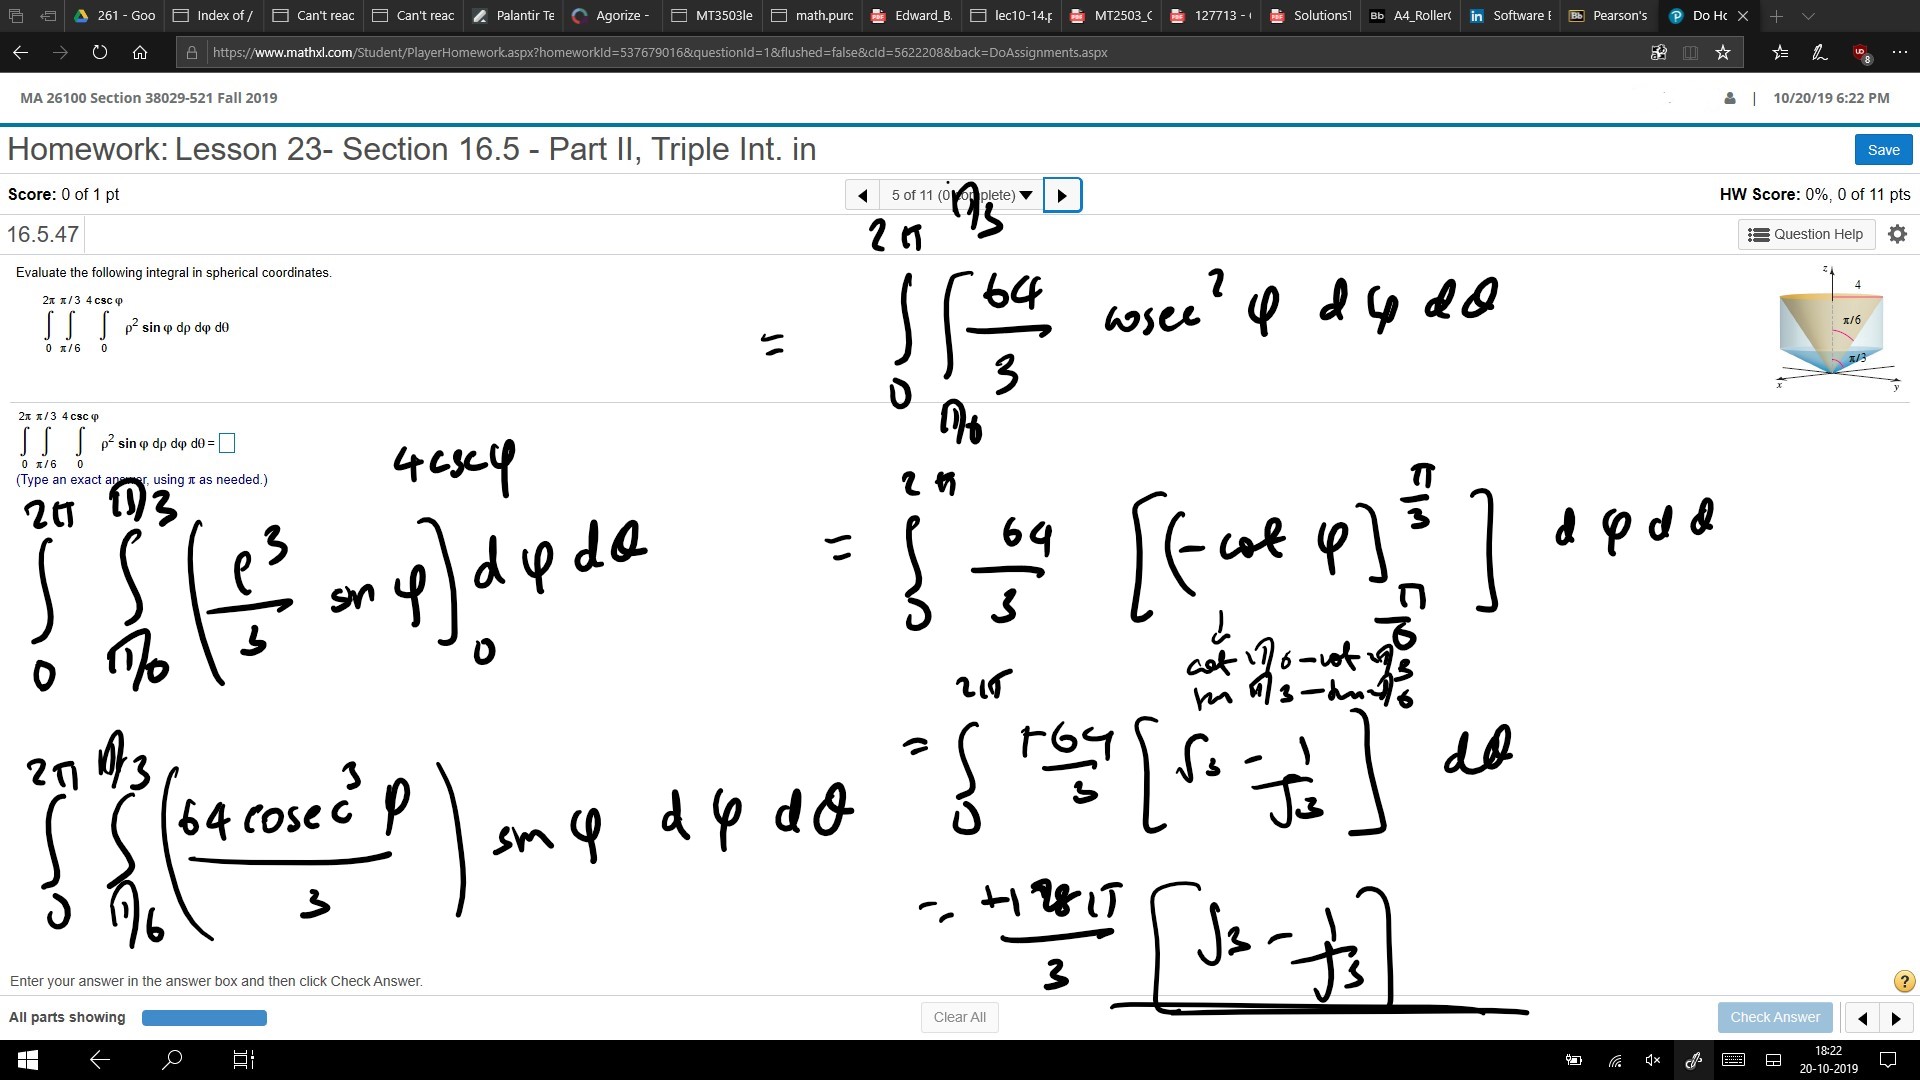 261 - Goo
Index of /
Can't reac
Can't reac
Palantir Te
Agorize -
MT3503le
math.purc
Edward_B.
lec10-14.p
MT2503_C
127713 - (
SolutionsT
Bb A4_RollerC
in Software E
Bb Pearson's
Do Hc
https://www.mathxl.com/Student/PlayerHomework.aspx?homeworkId=537679016&questionId=1&flushed=false&cId=5622208&back=DoAssignments.aspx
MA 26100 Section 38029-521 Fall 2019
| 10/20/19 6:22 PM
Homework: Lesson 23- Section 16.5 - Part II, Triple Int. in
Save
Score: 0 of 1 pt
5 of 11 (0 complete)
HW Score: 0%, 0 of 11 pts
16.5.47
Question Help
Evaluate the following integral in spherical coordinates.
2π π/3 4 csc φ
∫ ∫ ∫ ρ² sin φ dρ dφ dθ
0 π/6 0
z
4
π/6
π/3
x y
2π π/3 4 csc φ
∫ ∫ ∫ ρ² sin φ dρ dφ dθ =
0 π/6 0
(Type an exact answer, using π as needed.)
4cscφ
2π π/3
∫ ∫ (ρ³/3 sin φ] dφ dθ
0 π/6 0
2π π/3
∫ ∫ (64 cosec³ φ / 3) sin φ dφ dθ
0 π/6
2π π/3
= ∫ ∫ 64/3 cosec² φ dφ dθ
0 π/6
2π π/3
= ∫ 64/3 [(-cot φ] ] dφ dθ
0 π/6
cot π/6 - cot π/3
tan π/3 - tan π/6
2π
= ∫ +64/3 [√3 - 1/√3] dθ
0
= +128π/3 [√3 - 1/√3]
Enter your answer in the answer box and then click Check Answer.
?
All parts showing
Clear All
Check Answer
18:22
20-10-2019